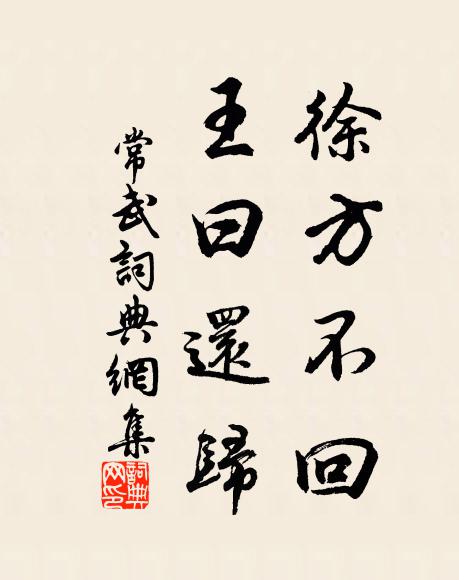 徐方不回
王曰還歸
常武詞典網集
詞典
网印